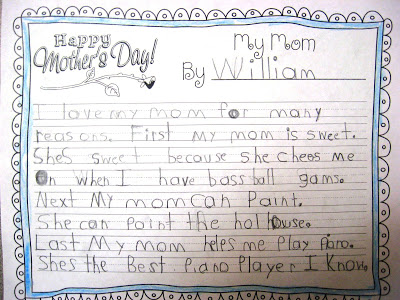 Happy
Mother's Day!
My Mom
By Willian
I love my mom for many
reasons. First my mom is sweet.
She's sweet because she chees me
on when I have bass ball gams.
Next My mom can Paint.
She can paint the hol house.
Last My mom helps me Play Piano.
She's the Best Piano Player I Know.